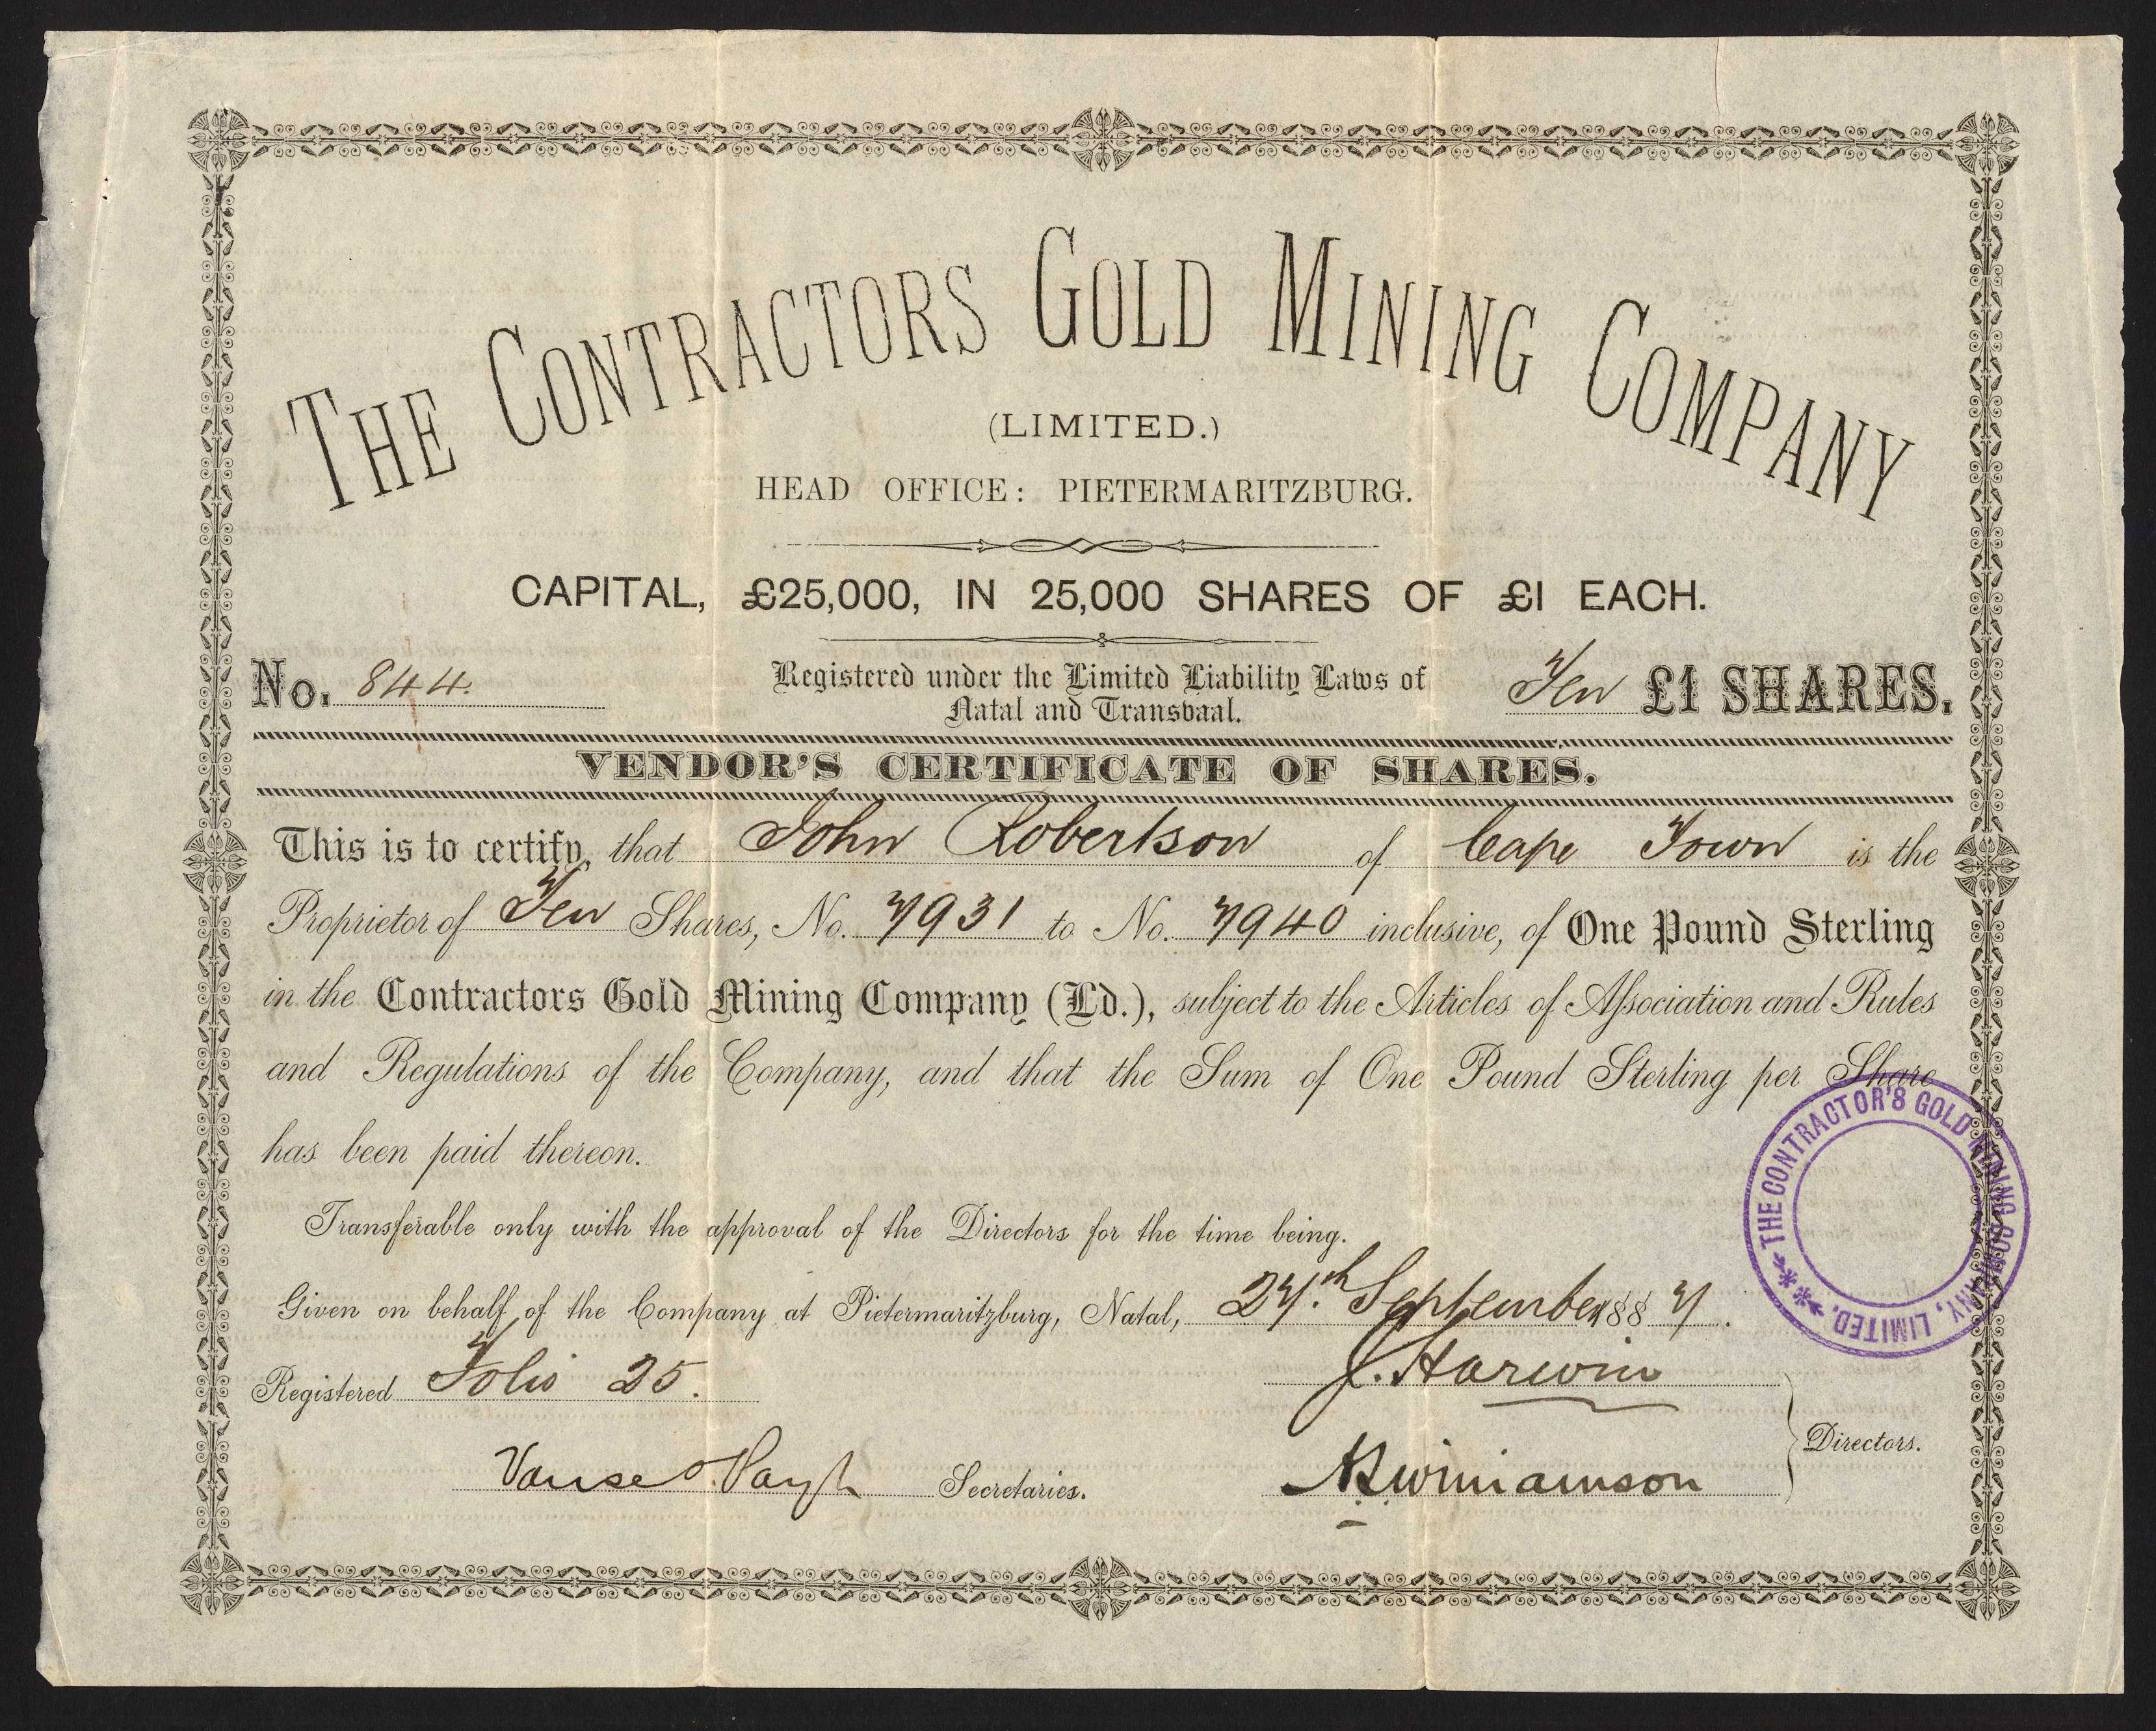 THE CONTRACTORS GOLD MINING COMPANY
(LIMITED.)
HEAD OFFICE: PIETERMARITZBURG.
CAPITAL, £25,000, IN 25,000 SHARES OF £1 EACH.
No. 844. Registered under the Limited Liability Laws of Ten £1 SHARES.
Natal and Transvaal.
VENDOR'S CERTIFICATE OF SHARES.
This is to certify, that John Robertson of Cape Town is the
Proprietor of Ten Shares, No. 7931 to No. 7940 inclusive, of One Pound Sterling
in the Contractors Gold Mining Company (Ld.), subject to the Articles of Association and Rules
and Regulations of the Company, and that the Sum of One Pound Sterling per Share
has been paid thereon.
THE CONTRACTOR'S GOLD MINING COMPANY, LIMITED.
Transferable only with the approval of the Directors for the time being.
Given on behalf of the Company at Pietermaritzburg, Natal, 27th September 1887.
Registered Folio 25.
J. Harwin
Directors.
Vause Secretaries. Williamson